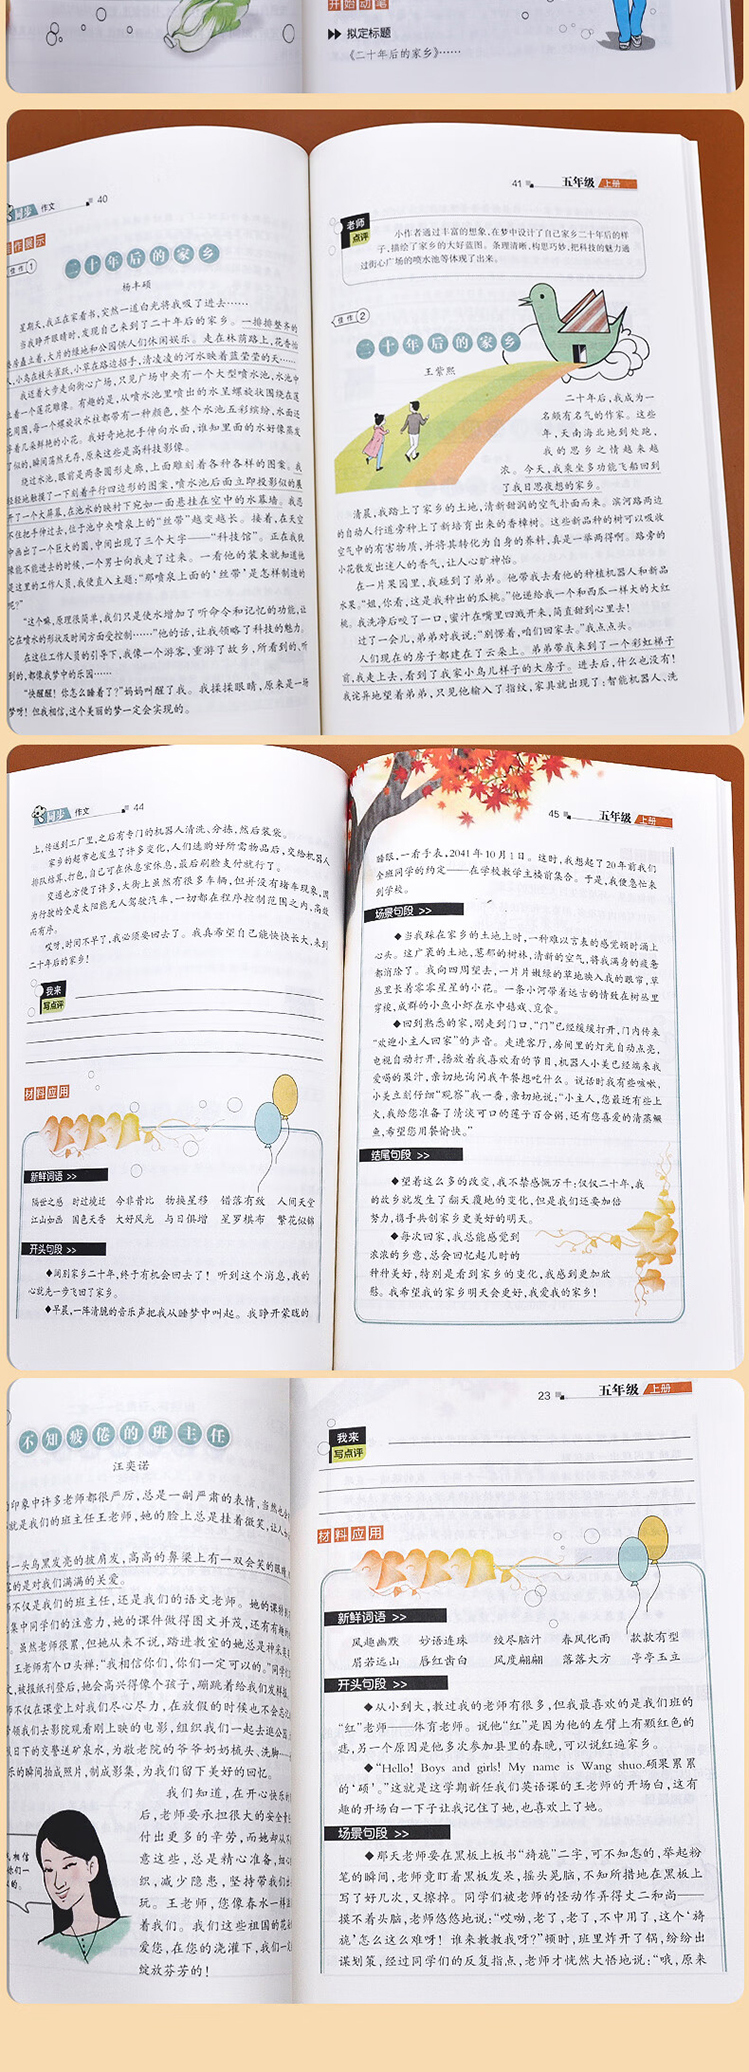 开始动笔
拟定标题
《二十年后的家乡》……
同步 作文 40
佳作展示
佳作1
二十年后的家乡
杨丰硕
星期天,我正在家看书,突然一道白光将我吸了进去……
当我睁开眼睛时,发现自己来到了二十年后的家乡。一排排整齐的
房矗立着,大片的绿地和公园供人们休闲娱乐。走在林荫路上,花香怡
人,小鸟在枝头雀跃,小草在路边招手,清凌凌的河水映着蓝莹莹的天……
我迈着大步走向街心广场,只见广场中央有一个大型喷水池,水池中
着一个莲花雕像。有趣的是,从喷水池里喷出的水呈螺旋状围绕在莲
花周围,每一个螺旋状水柱都带有一种颜色,整个水池五彩缤纷,水面还
着几朵鲜艳的小花。我好奇地把手伸向水面,谁知里面的水好像蒸发
了似的,瞬间荡然无存,原来这些是高科技影像。
绕过水池,眼前是两条圆形走廊,上面雕刻着各种各样的图案。我
轻轻地触摸了一下刻着平行四边形的图案,喷水池后面立即投影似的展
开了一个大屏幕,在池水的映衬下宛如一面悬挂在空中的水幕墙。我忍
不住把手伸过去,位于池中央喷泉上的“丝带”越变越长。接着,在天空
中画出了一个巨大的圆,中间出现了三个大字——“科技馆”。正在我犹
豫能不能进去的时候,一个男士向我走了过来。一看他的装束就知道他
是这里的工作人员,我便直入主题:“那喷泉上面的‘丝带’是怎样制造的
呢?”
“这个嘛,原理很简单,我们只是使水增加了听命令和记忆的功能,让
它在喷水的形状及时间方面受控制……”他的话,让我领略了科技的魅力。
在这位工作人员的引导下,我像一个游客,重游了故乡,所看到的、听
到的,都像我梦中的乐园……
“快醒醒!你怎么睡着了?”妈妈叫醒了我。我揉揉眼睛,原来是一场
梦呀!但我相信,这个美丽的梦一定会实现的。
41 五年级 上册
老师
点评
小作者通过丰富的想象,在梦中设计了自己家乡二十年后的样
子,描绘了家乡的大好蓝图。条理清晰,构思巧妙,把科技的魅力通
过街心广场的喷水池等体现了出来。
佳作2
二十年后的家乡
王紫熙
二十年后,我成为一
名颇有名气的作家。这些
年,天南海北地到处跑,
我的思乡之情越来越
浓。今天,我乘坐多功能飞船回到
了我日思夜想的家乡。
清晨,我踏上了家乡的土地,清新甜润的空气扑面而来。滨河路两边
的自动人行道旁种上了新培育出来的香樟树。这些新品种的树可以吸收
空气中的有害物质,并将其转化为自身的养料,真是一举两得啊。路旁的
小花散发出迷人的香气,让人心旷神怡。
在一片果园里,我碰到了弟弟。他带我去看他的种植机器人和新品
水果。“姐,你看,这是我种出的瓜桃。”他递给我一个和西瓜一样大的大红
桃。我洗净后咬了一口,蜜汁在嘴里四溅开来,简直甜到心里去!
过了一会儿,弟弟对我说:“别愣着,咱们回家去。”我点点头。
人们现在的房子都建在了云朵上。弟弟带我来到了一个彩虹梯子
前,我走上去,看到了我家小鸟儿样子的大房子。进去后,什么也没有!
我诧异地望着弟弟,只见他输入了指纹,家具就出现了:智能机器人、洗
同步 作文 44
上,传送到工厂里,之后有专门的机器人清洗、分拣,然后装袋。
家乡的超市也发生了许多变化,人们选购好所需物品后,交给机器人
排队结算、打包,自己可在休息室休息,最后刷脸支付就行了。
交通也方便了许多,大街上虽然有很多车辆,但并没有堵车现象,因
为行驶的全是太阳能无人驾驶汽车,一切都在程序控制范围之内,高效
而有序。
哎呀,时间不早了,我必须要回去了。我真希望自己能快快长大,来到
二十年后的家乡!
我来
写点评
材料应用
新鲜词语 >>
隔世之感 时过境迁 今非昔比 物换星移 错落有致 人间天堂
江山如画 国色天香 大好风光 与日俱增 星罗棋布 繁花似锦
开头句段 >>
◆阔别家乡二十年,终于有机会回去了!听到这个消息,我的
心就先一步飞回了家乡。
◆早晨,一阵清脆的音乐声把我从睡梦中叫起。我睁开蒙眬的
45 五年级 上册
睡眼,一看手表,2041年10月1日。这时,我想起了20年前我们
全班同学的约定——在学校教学主楼前集合。于是,我便急忙来
到学校。
场景句段 >>
◆当我踩在家乡的土地上时,一种难以言表的感觉顿时涌上
心头。这广袤的土地,葱郁的树林,清新的空气,将我满身的疲惫
都消除了。我向四周望去,一片片嫩绿的草地映入我的眼帘,草
丛里长着零零星星的小花。一条小河带着远古的情致在树丛里
穿梭,成群的小鱼小虾在水中嬉戏、觅食。
◆回到熟悉的家,刚走到门口,“门”已经缓缓打开,门内传来
“欢迎小主人回家”的声音。走进客厅,房间里的灯光自动点亮,
电视自动打开,播放着我喜欢看的节目,机器人小美已经端来我
爱喝的果汁,亲切地询问我午餐想吃什么。说话时我有些咳嗽,
小美立刻仔细“观察”我一番,亲切地说:“小主人,您最近有些上
火,我给您准备了清淡可口的莲子百合粥,还有您喜爱的清蒸鳜
鱼,希望您用餐愉快。”
结尾句段 >>
◆望着这么多的改变,我不禁感慨万千:仅仅二十年,我
的故乡就发生了翻天覆地的变化,但是我们还要加倍
努力,携手共创家乡更美好的明天。
◆每次回家,我总能感觉到
浓浓的乡意,总会回忆起儿时的
种种美好,特别是看到家乡的变化,我感到更加欣
慰。我希望我的家乡明天会更好,我爱我的家乡!
不知疲倦的班主任
汪奕诺
印象中许多老师都很严厉,总是一副严肃的表情,当然也
就是我们的班主任王老师,她的脸上总是挂着微笑,让人
一头乌黑发亮的披肩发,高高的鼻梁上有一双会笑的眼睛
的是对我们满满的关爱。
师不仅是我们的班主任,还是我们的语文老师。她的课特
集中同学们的注意力,她的课件做得图文并茂,还有有趣
。虽然老师很累,但她从来不说,踏进教室的她总是神采
王老师有个口头禅:“我相信你们,你们一定可以的。”同学们
文,被报纸刊登后,她会高兴得像个孩子,蹦跳着给我们发样报
师不仅在课堂上对我们尽心尽力,在放假的时候也不会忘
带领我们去影院观看刚上映的电影,组织我们一起去逛公园
日下的交警送矿泉水,为敬老院的爷爷奶奶梳头、洗脚
乐的瞬间拍成照片,制成影集,为我们留下美好的回忆。
我们知道,在开心快乐
后,老师要承担很大的安全责
付出更多的辛劳,而她却从不
意这些,总是精心准备,细心
织,减少隐患,坚持带我们出
玩。王老师,您像春水一样
着我们。我们这些祖国的花
爱您,在您的浇灌下,我们一定
绽放芬芳的!
相信
们一
的。
23 五年级 上册
我来
写点评
材料应用
新鲜词语 >>
风趣幽默 妙语连珠 绞尽脑汁 春风化雨 款款有型
眉若远山 唇红齿白 风度翩翩 落落大方 亭亭玉立
开头句段 >>
◆从小到大,教过我的老师有很多,但我最喜欢的是我们班的
“红”老师——体育老师。说他“红”是因为他的左臂上有颗红色的
痣,另一个原因是他多次参加县里的春晚,可以说红遍家乡。
◆“Hello! Boys and girls! My name is Wang shuo.硕果累累
的‘硕’。”这就是这学期新任我们英语课的王老师的开场白,这有
趣的开场白一下子让我记住了她,也喜欢上了她。
场景句段 >>
◆那天老师要在黑板上板书“旖旎”二字,可不知怎的,举起粉
笔的瞬间,老师竟盯着黑板发呆,摇头晃脑,不知所措地在黑板上
写了好几次,又擦掉。同学们被老师的怪动作弄得丈二和尚——
摸不着头脑,老师悠悠地说:“哎呦,老了,老了,不中用了,这个‘旖
旎’怎么这么难呀!谁来教教我呀?”顿时,班里炸开了锅,纷纷出
谋划策,经过同学们的反复指点,老师才恍然大悟地说:“哦,原来